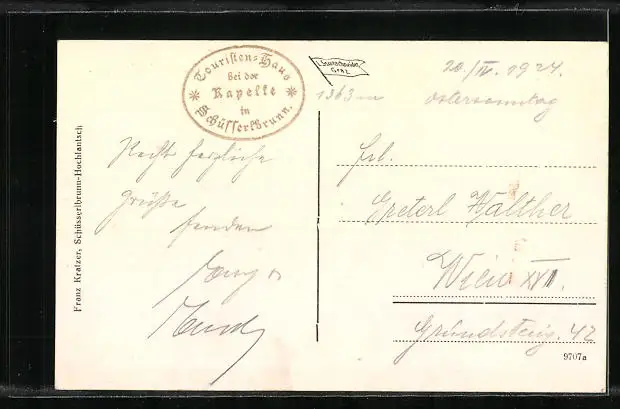 Touristen-Haus
bei der
Kapelle
in
Schüsserlbrunn.
Graz
1363 m
20./IV. 1924.
Ostersonntag
Recht herzliche
Grüße
senden
Frl.
Greterl Walther
Wien XVII.
42
9707a
Franz Kratzer, Schüsserlbrunn-Hochlantsch